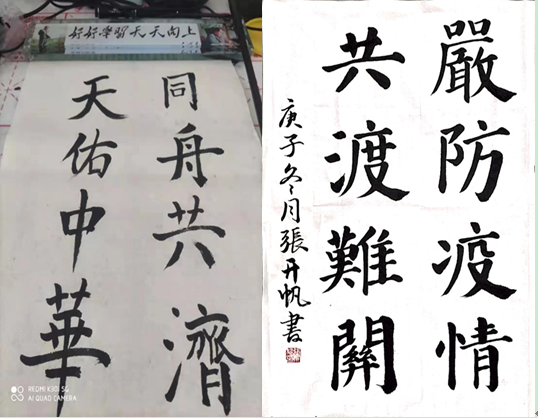 好好學習天天向上
同舟共濟
天佑中華
REDMI K30I 5G
AI QUAD CAMERA
嚴防疫情
共渡難關
庚子冬月張开帆書